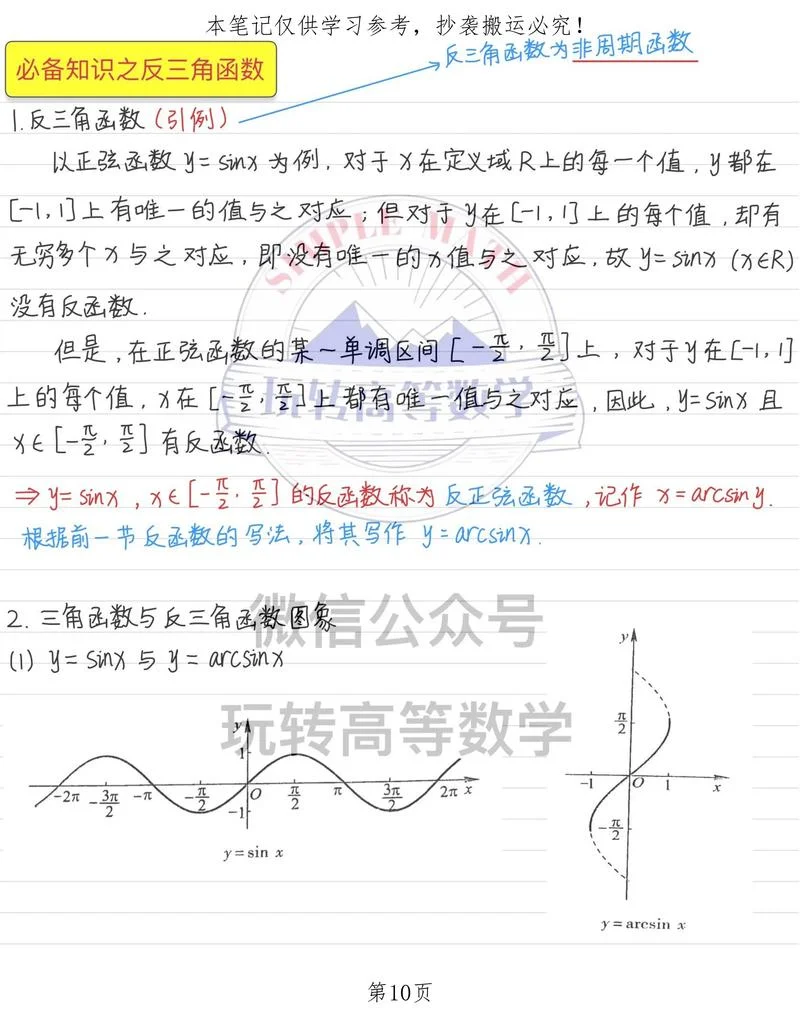 本笔记仅供学习参考，抄袭搬运必究！
必备知识之反三角函数
反三角函数为非周期函数
1.反三角函数（引例）
以正弦函数 y=sinx 为例，对于 x 在定义域 R 上的每一个值，y 都在
[-1,1] 上有唯一的值与之对应；但对于 y 在 [-1,1] 上的每个值，却有
无穷多个 x 与之对应，即没有唯一的 x 值与之对应，故 y=sinx (x∈R)
没有反函数.
但是，在正弦函数的某一单调区间 [-π/2, π/2] 上，对于 y 在 [-1,1]
上的每个值，x 在 [-π/2, π/2] 上都有唯一值与之对应，因此，y=sinx 且
x∈[-π/2, π/2] 有反函数.
⇒ y=sinx，x∈[-π/2, π/2] 的反函数称为反正弦函数，记作 x=arcsiny.
根据前一节反函数的写法，将其写作 y=arcsinx.
2. 三角函数与反三角函数图象
(1) y=sinx 与 y=arcsinx
y
1
-2π -3π/2 -π -π/2 O π/2 π 3π/2 2π x
-1
y=sin x
y
π/2
-1 O 1 x
-π/2
y=arcsin x
SIMPLE MATH
玩转高等数学
微信公众号
玩转高等数学
第10页